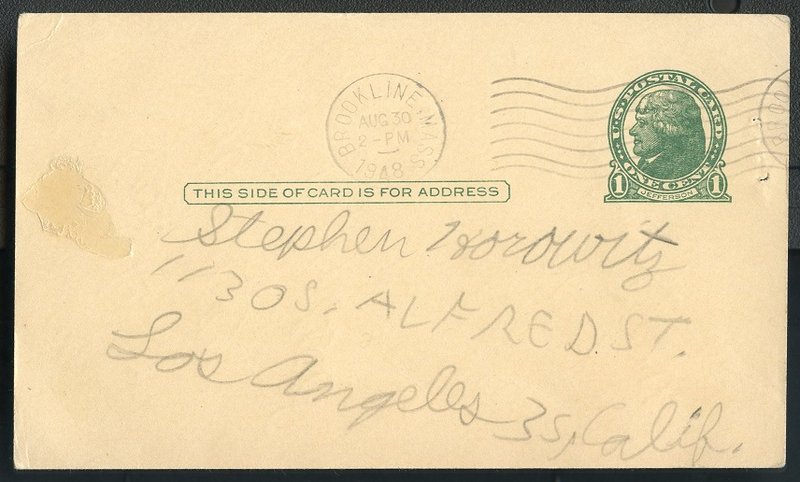 BROOKLINE, MASS.
AUG 30
2-PM
1948
U.S. POSTAL CARD
1 ONE CENT 1
JEFFERSON
THIS SIDE OF CARD IS FOR ADDRESS
Stephen Horowitz
1130 S. ALFRED ST.
Los Angeles 35, Calif.